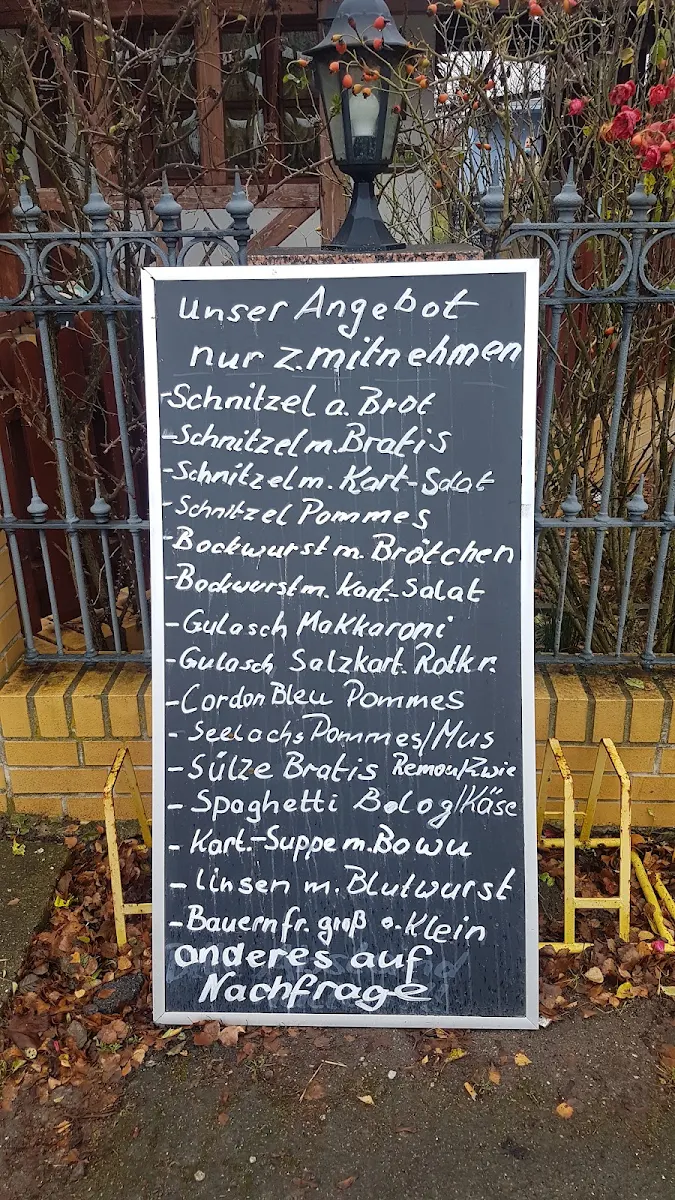 unser Angebot
nur z.mitnehmen
-Schnitzel a. Brot
-Schnitzel m. Bratis
-Schnitzel m. Kart-Salat
-Schnitzel Pommes
-Bockwurst m. Brötchen
-Bockwurst m. Kart.-Salat
-Gulasch Makkaroni
-Gulasch Salzkart. Rotkr.
-Cordon Bleu Pommes
-Seelachs Pommes/Mus
-Sülze Bratis Remou/Zwie
-Spaghetti Bolog/Käse
-Kart.-Suppe m. Bowu
-Linsen m. Blutwurst
-Bauernfr. groß o. Klein
anderes auf
Nachfrage